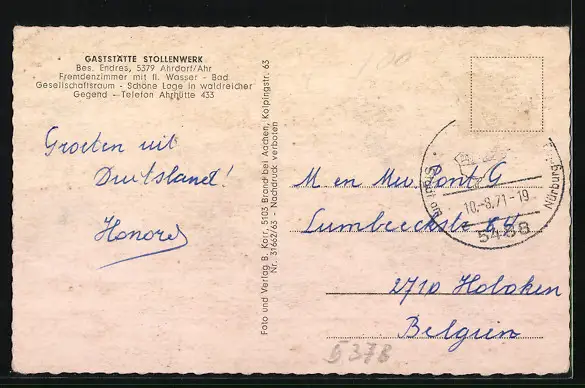 GASTSTÄTTE STOLLENWERK
Bes. Endres, 5379 Ahrdorf/Ahr
Fremdenzimmer mit fl. Wasser - Bad
Gesellschaftsraum - Schöne Lage in waldreicher
Gegend - Telefon Ahrhütte 433
Groeten uit
Duitsland!
Honoré
Foto und Verlag B. Korr, 5103 Brand bei Aachen, Kolpingstr. 63
Nr. 31662/63 - Nachdruck verboten
M en Mw Pont G
Lumbeeckstr 84
2710 Hoboken
Belgien
10.-8.71-19
5488
Nürburg
5378